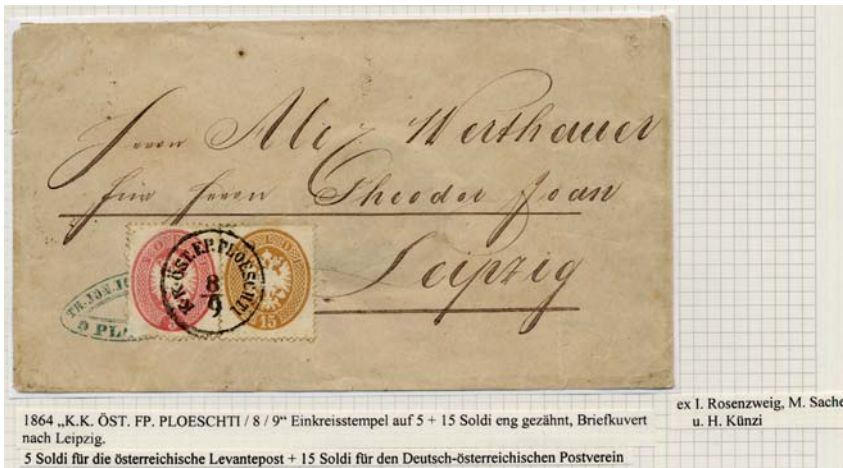 Herrn Alex Werthauer
für Herrn Theodor Joan
Leipzig
TH. JON. JO
PL
K.K. ÖST. FP. PLOESCHTI
8
9
15
1864 „K.K. ÖST. FP. PLOESCHTI / 8 / 9“ Einkreisstempel auf 5 + 15 Soldi eng gezähnt, Briefkuvert
nach Leipzig.
5 Soldi für die österreichische Levantepost + 15 Soldi für den Deutsch-österreichischen Postverein
ex I. Rosenzweig, M. Sache
u. H. Künzi